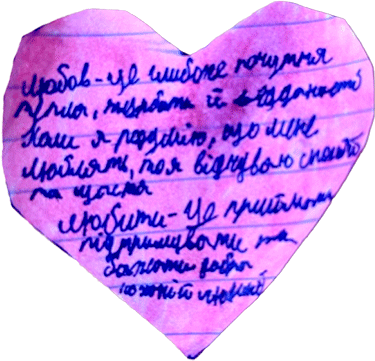 Любов - це глибоке почуття
тепла, турботи й відданості
Коли я розумію, що мене
люблять, то я відчуваю спокій
та щастя
Любити - це приймати,
підтримувати та
бажати добра
кожній людині